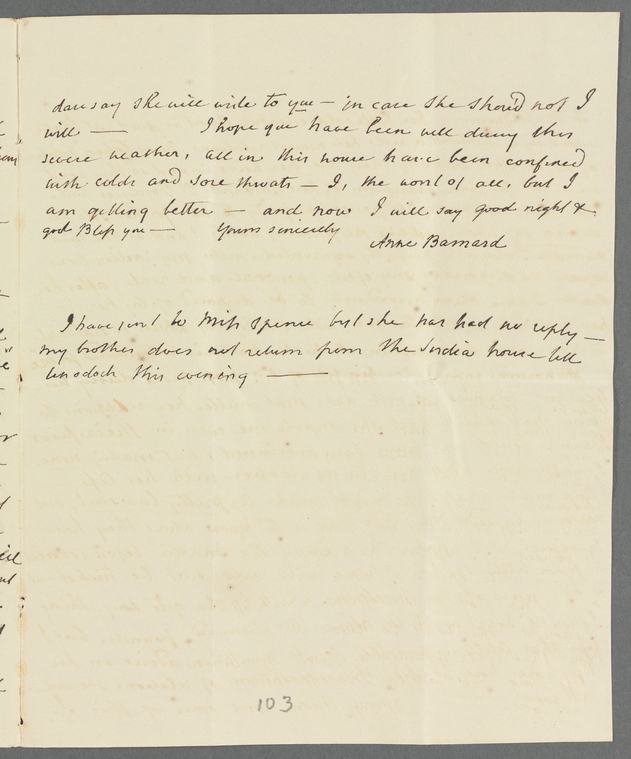 dare say she will write to you — in case she should not I
will — I hope you have been well during this
severe weather, all in this house have been confined
with colds and sore throats — I, the worst of all, but I
am getting better — and now I will say good night &
god Bless you — Yours sincerely
Anne Barnard
I have sent to Miss Spence but she has had no reply —
my brother does not return from the India house till
ten oclock this evening —
103